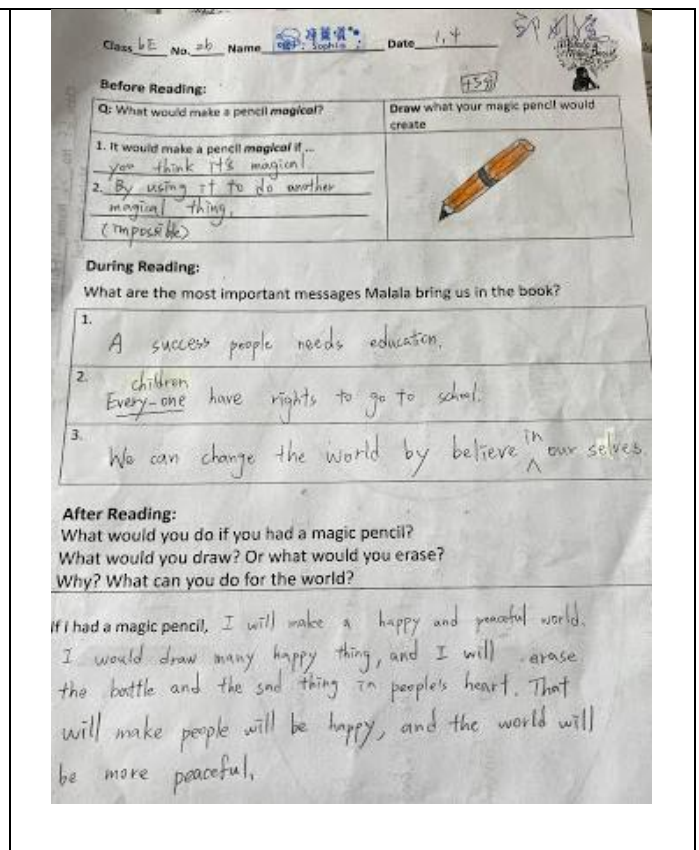 Class 6E No. 26 Name Sophia Date 1,4
Before Reading:
Q: What would make a pencil magical?
Draw what your magic pencil would create
1. It would make a pencil magical if ...
you think it's magical
2. By using it to do another
magical thing.
(impossible)
During Reading:
What are the most important messages Malala bring us in the book?
1.
A success people needs education.
2.
children
Every-one have rights to go to school.
3.
We can change the world by believe in our selves.
After Reading:
What would you do if you had a magic pencil?
What would you draw? Or what would you erase?
Why? What can you do for the world?
If I had a magic pencil, I will make a happy and peaceful world.
I would draw many happy thing, and I will erase
the battle and the sad thing in people's heart. That
will make people will be happy, and the world will
be more peaceful.